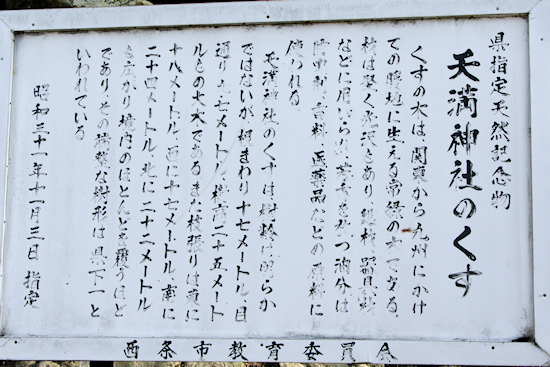 県指定天然記念物
天満神社のくす
くすの木は、関東から九州にかけ
ての暖地に生える常緑の木である
材は堅く光沢あり、建材、器具、船
などに用いられ、芳香を放つ油分は
防虫剤、香料、医薬品などの原料に
使われる
天満神社のくすは樹齢は明らか
ではないが根まわり十七メートル、目
通り九・七メートル、樹高二十五メート
ルもの大木であるまた枝張りは東に
十八メートル、西に十七メートル、南に
二十四メートル、北に二十二メートル
も広がり境内のほとんどを覆うほど
でありその端整な樹形は県下一と
いわれている
昭和三十一年十一月三日 指定
西条市教育委員会